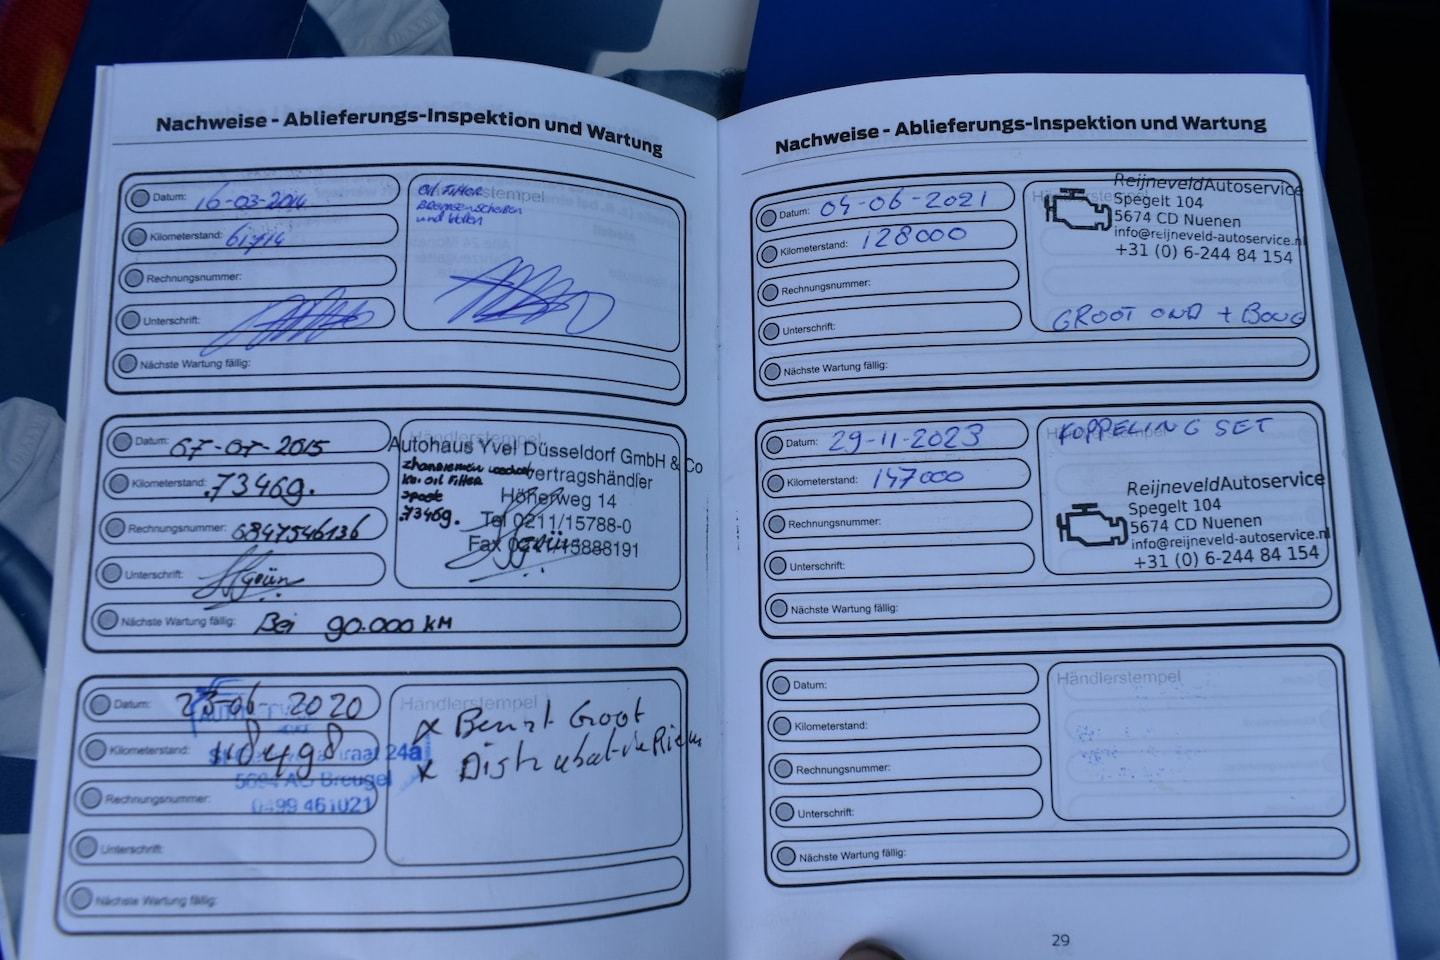 Nachweise - Ablieferungs-Inspektion und Wartung
Datum: 16-03-2014
Kilometerstand: 61714
Rechnungsnummer:
Unterschrift:
Nächste Wartung fällig:
Händlerstempel
Oil Filter
Bremsenscheiben
und
Datum: 07-07-2015
Kilometerstand: .73469.
Rechnungsnummer: 6847546136
Unterschrift: Grün
Nächste Wartung fällig: Bei 90.000 KM
Händlerstempel
Autohaus Yvel Düsseldorf GmbH & Co
Vertragshändler
Höherweg 14
Tel 0211/15788-0
Fax 0211/15888191
Zhanriemen
oil Filter
.73469.
Datum: 23-06 2020
Kilometerstand: 118498
Rechnungsnummer:
Unterschrift:
Nächste Wartung fällig:
24a
5694 AG Breugel
0499 461021
Händlerstempel
x Beurt Groot
x
Nachweise - Ablieferungs-Inspektion und Wartung
Datum: 04-06-2021
Kilometerstand: 128000
Rechnungsnummer:
Unterschrift:
Nächste Wartung fällig:
Händlerstempel
ReijneveldAutoservice
Spegelt 104
5674 CD Nuenen
info@reijneveld-autoservice.nl
+31 (0) 6-244 84 154
GROOT OND + BOUG
Datum: 29-11-2023
Kilometerstand: 147000
Rechnungsnummer:
Unterschrift:
Nächste Wartung fällig:
Händlerstempel
KOPPELING SET
ReijneveldAutoservice
Spegelt 104
5674 CD Nuenen
info@reijneveld-autoservice.nl
+31 (0) 6-244 84 154
Datum:
Kilometerstand:
Rechnungsnummer:
Unterschrift:
Nächste Wartung fällig:
Händlerstempel
29